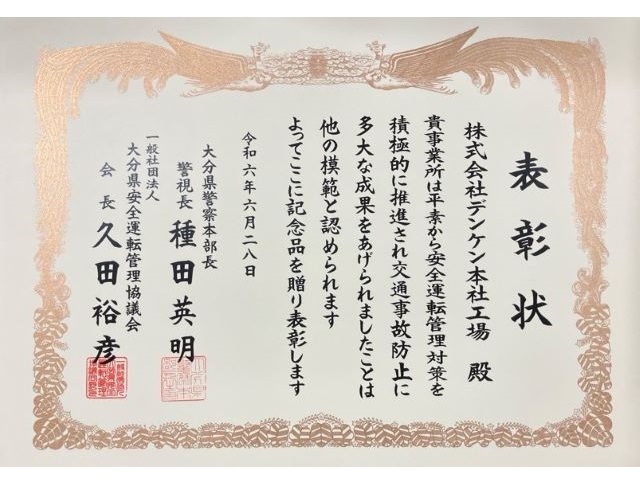 表彰状
株式会社デンケン本社工場 殿
貴事業所は平素から安全運転管理対策を
積極的に推進され交通事故防止に
多大な成果をあげられましたことは
他の模範と認められます
よってここに記念品を贈り表彰します
令和六年六月二八日
大分県警察本部長
警視長 種田英明
一般社団法人
大分県安全運転管理協議会
会長 久田裕彦